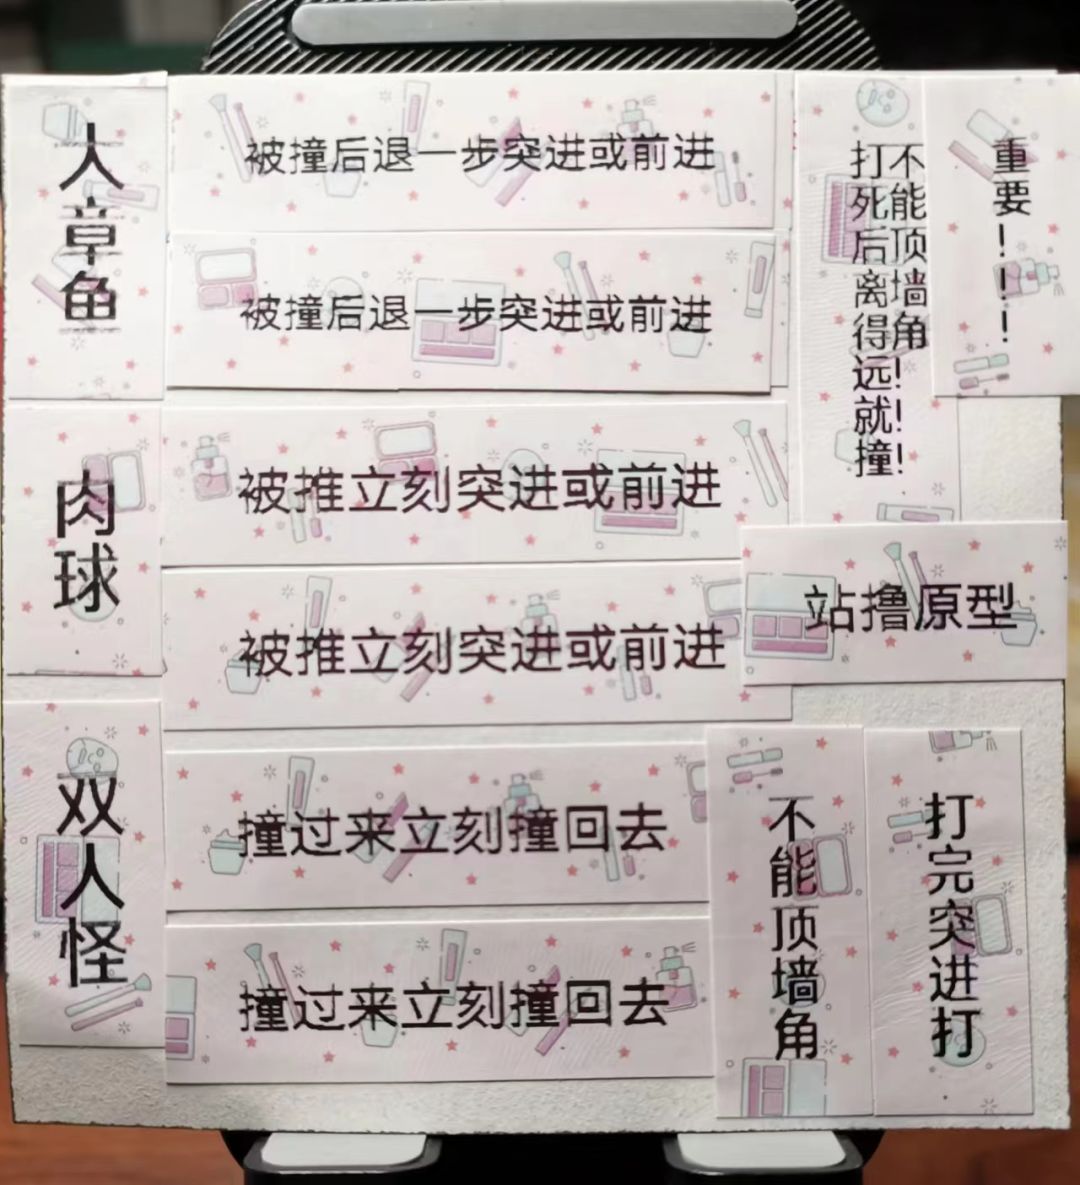 人章鱼
被撞后退一步突进或前进
被撞后退一步突进或前进
不能顶墙角!!!
打死后离得远就撞
重要!!!
肉球
被推立刻突进或前进
被推立刻突进或前进
站撸原型
双人怪
撞过来立刻撞回去
撞过来立刻撞回去
不能顶墙角
打完突进打